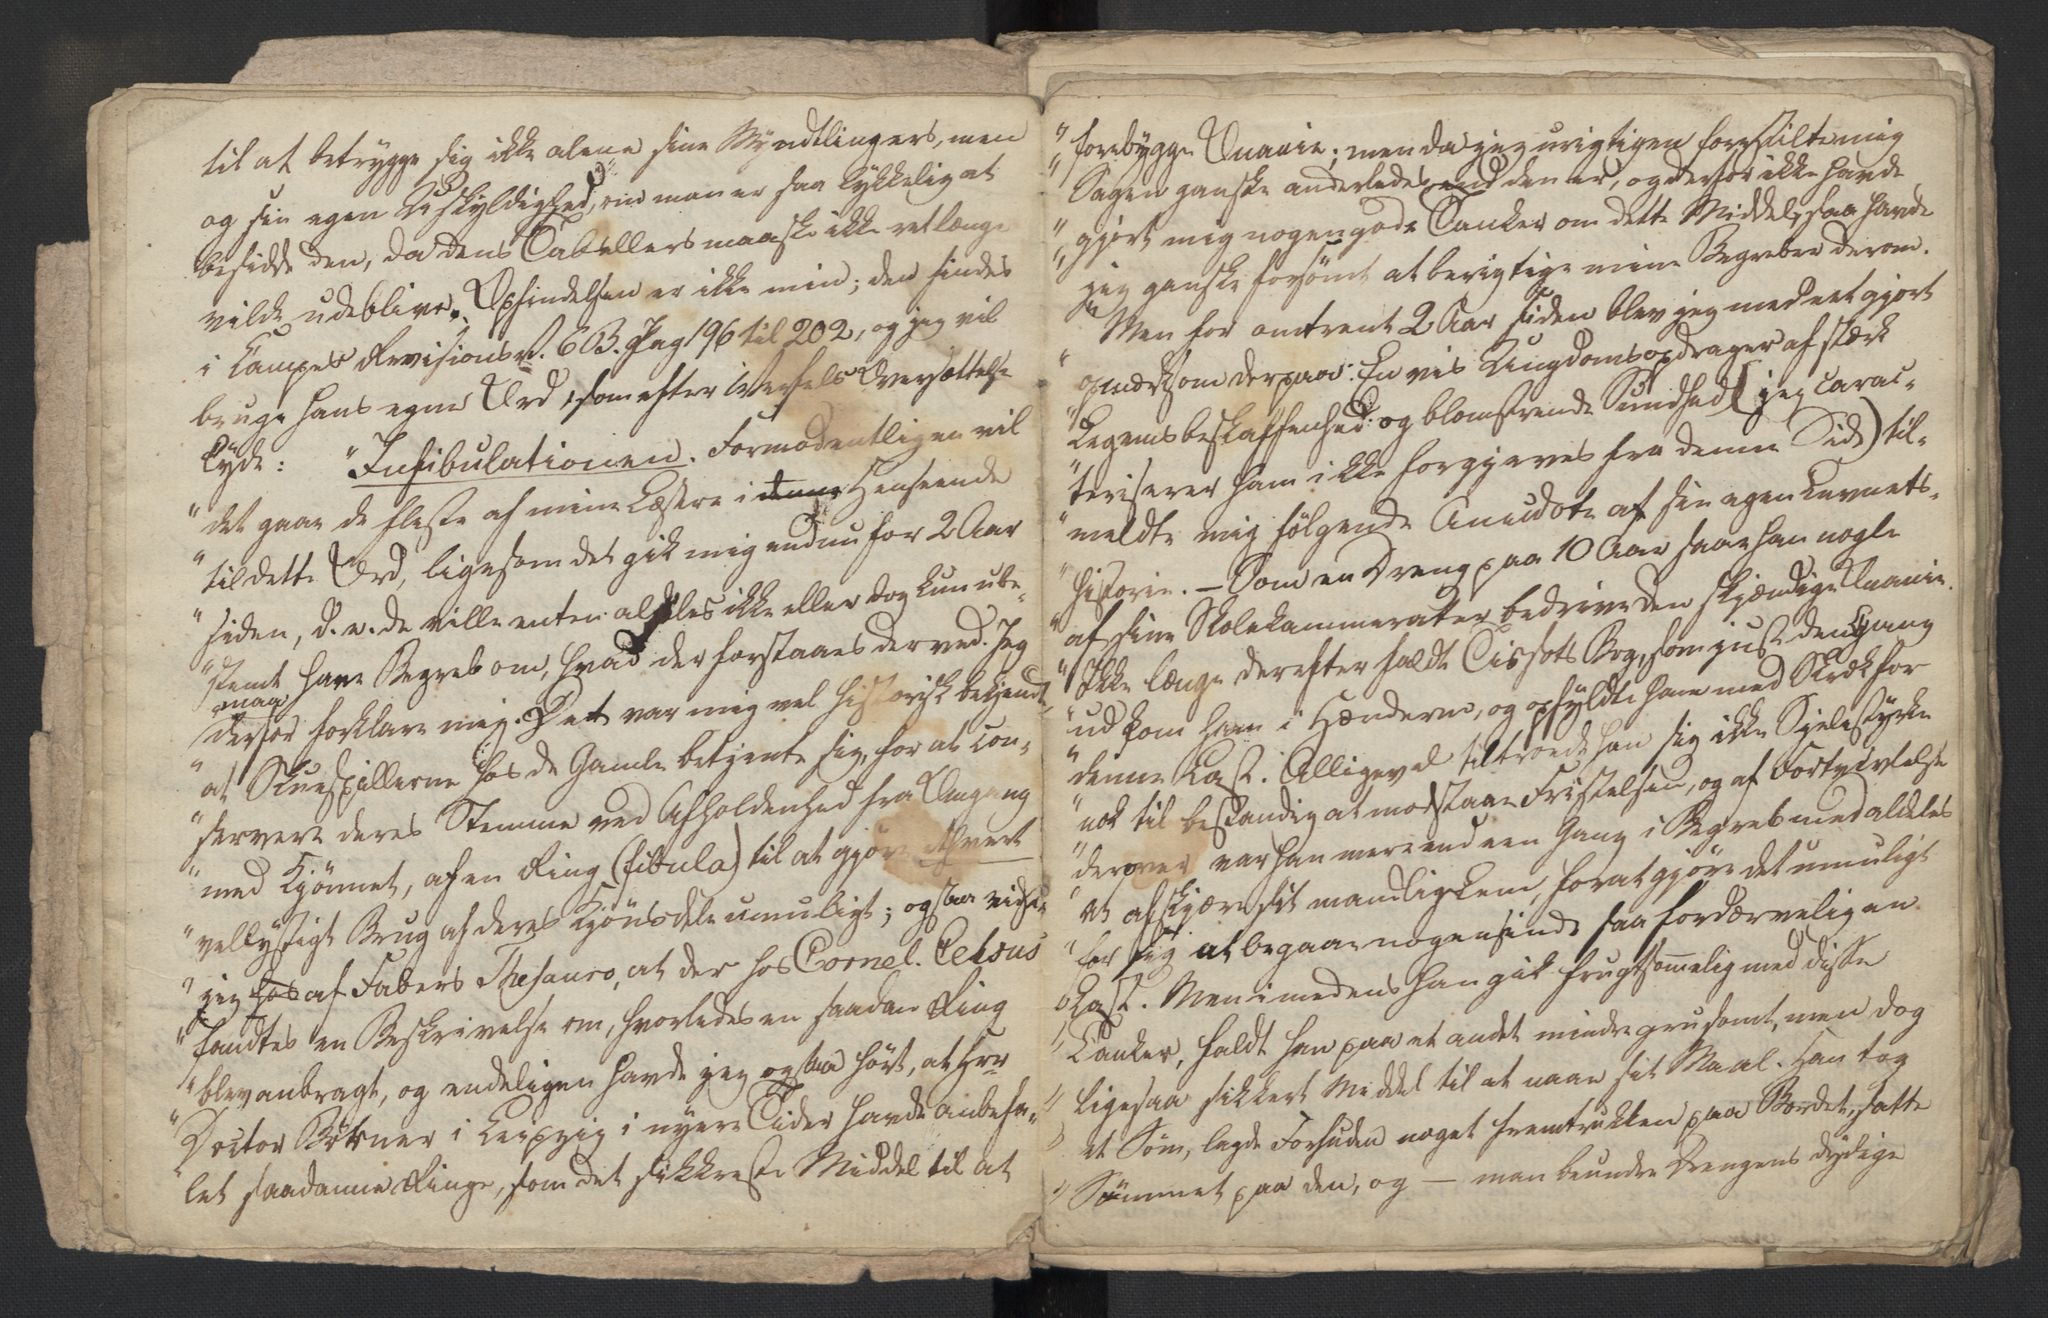 til at betrygge sig ikke alene sine Myndtlingers, men
og sin egen Uskyldighed, om man er saa lykkelig at
besidde den, da dens Tabellers maaske ikke ret længe
vilde udeblive. Opfindelsen er ikke min; den findes
i Campes Revisions. 6 B. Pag 196 til 202, og jeg vil
bruge hans egne Ord, som efter Oversættelse
lyde: "Infibulationen. Formodentligen vil
" det gaae de fleste af mine Læsere i denne Henseende
" til dette Ord, ligesom det gik mig endnu for 2 Aar
" siden, d. e. de ville enten aldeles ikke eller dog kun ube-
" stemt have Begreb om, hvad der forstaaes derved. Jeg
maa
" derfor forklare mig. Det var mig vel historisk bekjendt,
" at Skuespillerne hos de Gamle betjente sig, for at con-
" servere deres Stemme ved Afholdenhed fra Omgang
" med Kjønnet, af en Ring (fibula) til at gjøre ethvert
" vellystigt Brug af deres Kjønsdele umuligt; ogsaa vidste
" jeg hos af Fabers Thesauro, at der hos Cornel. Celsus
" fandtes en Beskrivelse om, hvorledes en saadan Ring
" blev anbragt, og endeligen havde jeg ogsaa hørt, at Hrr
" Doctor Börner i Leipzig i nyere Tider havde anbefa-
" let saadanne Ringe, som det sikkreste Middel til at
" forebygge Onanie; men da jeg urigtigen forestilte mig
" Sagen ganske anderledes end den er, og derfor ikke havde
" gjort mig nogen gode Tanker om dette Middel, saa havde
" jeg ganske forsömt at berigtige mine Begreber derom.
" Men for omtrent 2 Aar siden blev jeg med eet gjort
" opmærksom derpaa: En vis Ungdomsopdrager af stærk
" Legemsbeskaffenhed og blomstrende Sundhed (jeg carac-
" teriserer ham ikke forgjeves fra denne Side) til-
" meldte mig følgende Anecdote af sin egen Levnets-
" historie. – Som en Dreng paa 10 Aar saae han nogle
" af sine Skolekammerater bedrive den skjændige Onanie.
" Ikke længe derefter faldt Tissots Bog, som just dengang
" udkom ham i Hænderne, og opfyldte ham med Skræk for
" denne Last. Alligevel tiltroede han sig ikke Sjelestyrke
" nok til bestandig at modstaae Fristelsen, og af Fortvivlelse
" derover var han mere end een Gang i Begreb med aldeles
" at afskjære sit mandlig Lem, for at gjöre det umuligt
" for sig at begaae nogensinde saa fordærvelig en
" Last. Men imedens han gik frugtsommelig med disse
" Tanker, faldt han paa et andet mindre grusomt, men dog
" ligesaa sikkert Middel til at naae sit Maal. Han tog
" et Söm, lagde Forhuden noget fremtrukken paa Bordet, satte
" Sömmet paa den, og — man beundre Drengens dydige